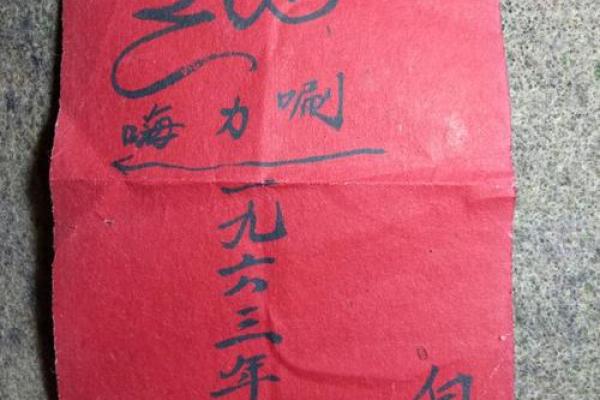 唰力嗨
一九六三年